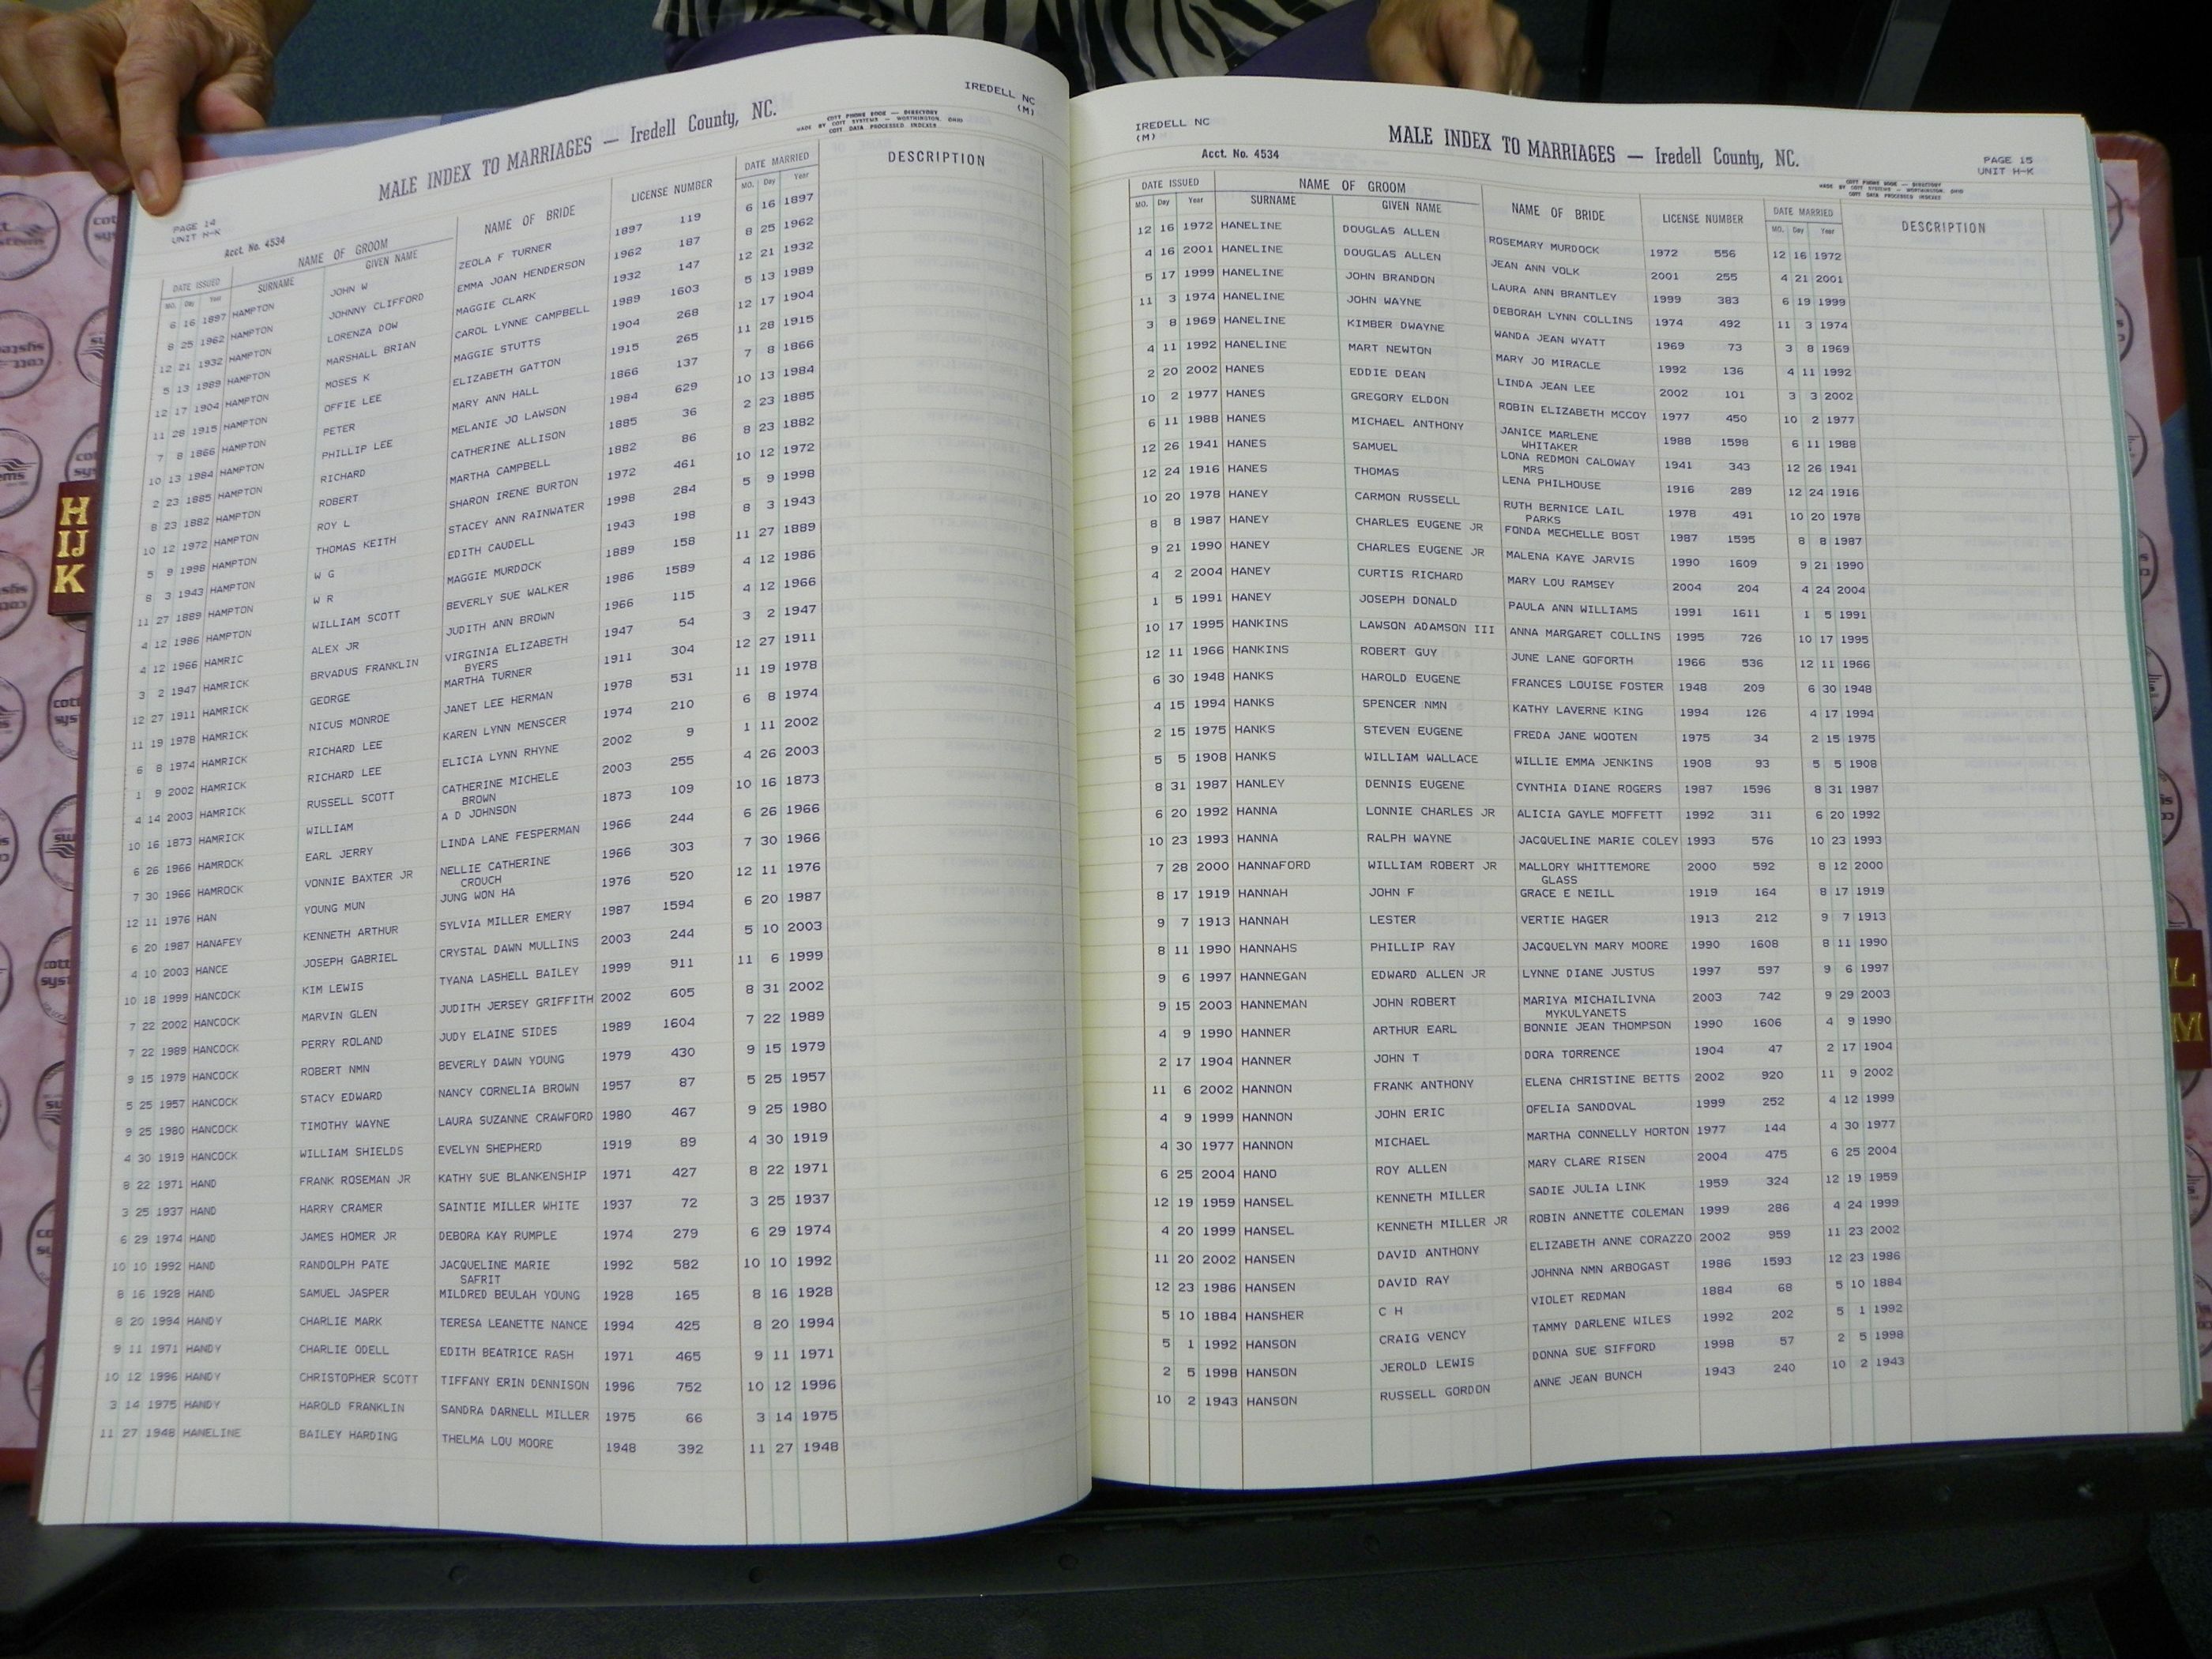 IREDELL NC
(M)
MALE INDEX TO MARRIAGES — Iredell County, NC.
COTT PHONE BOOK — DIRECTORY
MADE BY COTT SYSTEMS — WORTHINGTON, OHIO
COTT DATA PROCESSED INDEXES
PAGE 14
UNIT H-K
Acct. No. 4534
DATE ISSUED NAME OF GROOM NAME OF BRIDE LICENSE NUMBER DATE MARRIED DESCRIPTION
MO. Day Year SURNAME GIVEN NAME MO. Day Year
6 16 1897 HAMPTON JOHN W ZEOLA F TURNER 1897 119 6 16 1897
8 25 1962 HAMPTON JOHNNY CLIFFORD EMMA JOAN HENDERSON 1962 187 8 25 1962
12 21 1932 HAMPTON LORENZA DOW MAGGIE CLARK 1932 147 12 21 1932
5 13 1989 HAMPTON MARSHALL BRIAN CAROL LYNNE CAMPBELL 1989 1603 5 13 1989
12 17 1904 HAMPTON MOSES K MAGGIE STUTTS 1904 268 12 17 1904
11 28 1915 HAMPTON OFFIE LEE ELIZABETH GATTON 1915 265 11 28 1915
7 8 1866 HAMPTON PETER MARY ANN HALL 1866 137 7 8 1866
10 13 1984 HAMPTON PHILLIP LEE MELANIE JO LAWSON 1984 629 10 13 1984
2 23 1885 HAMPTON RICHARD CATHERINE ALLISON 1885 36 2 23 1885
8 23 1882 HAMPTON ROBERT MARTHA CAMPBELL 1882 86 8 23 1882
10 12 1972 HAMPTON ROY L SHARON IRENE BURTON 1972 461 10 12 1972
5 9 1998 HAMPTON THOMAS KEITH STACEY ANN RAINWATER 1998 284 5 9 1998
8 3 1943 HAMPTON W G EDITH CAUDELL 1943 198 8 3 1943
11 27 1889 HAMPTON W R MAGGIE MURDOCK 1889 158 11 27 1889
4 12 1986 HAMPTON WILLIAM SCOTT BEVERLY SUE WALKER 1986 1589 4 12 1986
4 12 1966 HAMRIC ALEX JR JUDITH ANN BROWN 1966 115 4 12 1966
3 2 1947 HAMRICK BRVADUS FRANKLIN VIRGINIA ELIZABETH 1947 54 3 2 1947
BYERS
12 27 1911 HAMRICK GEORGE MARTHA TURNER 1911 304 12 27 1911
11 19 1978 HAMRICK NICUS MONROE JANET LEE HERMAN 1978 531 11 19 1978
6 8 1974 HAMRICK RICHARD LEE KAREN LYNN MENSCER 1974 210 6 8 1974
1 9 2002 HAMRICK RICHARD LEE ELICIA LYNN RHYNE 2002 9 1 11 2002
4 14 2003 HAMRICK RUSSELL SCOTT CATHERINE MICHELE 2003 255 4 26 2003
BROWN
10 16 1873 HAMRICK WILLIAM A D JOHNSON 1873 109 10 16 1873
6 26 1966 HAMROCK EARL JERRY LINDA LANE FESPERMAN 1966 244 6 26 1966
7 30 1966 HAMROCK VONNIE BAXTER JR NELLIE CATHERINE 1966 303 7 30 1966
CROUCH
12 11 1976 HAN YOUNG MUN JUNG WON HA 1976 520 12 11 1976
6 20 1987 HANAFEY KENNETH ARTHUR SYLVIA MILLER EMERY 1987 1594 6 20 1987
4 10 2003 HANCE JOSEPH GABRIEL CRYSTAL DAWN MULLINS 2003 244 5 10 2003
10 18 1999 HANCOCK KIM LEWIS TYANA LASHELL BAILEY 1999 911 11 6 1999
7 22 2002 HANCOCK MARVIN GLEN JUDITH JERSEY GRIFFITH 2002 605 8 31 2002
7 22 1989 HANCOCK PERRY ROLAND JUDY ELAINE SIDES 1989 1604 7 22 1989
9 15 1979 HANCOCK ROBERT NMN BEVERLY DAWN YOUNG 1979 430 9 15 1979
5 25 1957 HANCOCK STACY EDWARD NANCY CORNELIA BROWN 1957 87 5 25 1957
9 25 1980 HANCOCK TIMOTHY WAYNE LAURA SUZANNE CRAWFORD 1980 467 9 25 1980
4 30 1919 HANCOCK WILLIAM SHIELDS EVELYN SHEPHERD 1919 89 4 30 1919
8 22 1971 HAND FRANK ROSEMAN JR KATHY SUE BLANKENSHIP 1971 427 8 22 1971
3 25 1937 HAND HARRY CRAMER SAINTIE MILLER WHITE 1937 72 3 25 1937
6 29 1974 HAND JAMES HOMER JR DEBORA KAY RUMPLE 1974 279 6 29 1974
10 10 1992 HAND RANDOLPH PATE JACQUELINE MARIE 1992 582 10 10 1992
SAFRIT
8 16 1928 HAND SAMUEL JASPER MILDRED BEULAH YOUNG 1928 165 8 16 1928
8 20 1994 HANDY CHARLIE MARK TERESA LEANETTE NANCE 1994 425 8 20 1994
9 11 1971 HANDY CHARLIE ODELL EDITH BEATRICE RASH 1971 465 9 11 1971
10 12 1996 HANDY CHRISTOPHER SCOTT TIFFANY ERIN DENNISON 1996 752 10 12 1996
3 14 1975 HANDY HAROLD FRANKLIN SANDRA DARNELL MILLER 1975 66 3 14 1975
11 27 1948 HANELINE BAILEY HARDING THELMA LOU MOORE 1948 392 11 27 1948
IREDELL NC
(M)
MALE INDEX TO MARRIAGES — Iredell County, NC.
Acct. No. 4534
PAGE 15
UNIT H-K
COTT PHONE BOOK — DIRECTORY
MADE BY COTT SYSTEMS — WORTHINGTON, OHIO
COTT DATA PROCESSED INDEXES
DATE ISSUED NAME OF GROOM NAME OF BRIDE LICENSE NUMBER DATE MARRIED DESCRIPTION
MO. Day Year SURNAME GIVEN NAME MO. Day Year
12 16 1972 HANELINE DOUGLAS ALLEN ROSEMARY MURDOCK 1972 556 12 16 1972
4 16 2001 HANELINE DOUGLAS ALLEN JEAN ANN VOLK 2001 255 4 21 2001
5 17 1999 HANELINE JOHN BRANDON LAURA ANN BRANTLEY 1999 383 6 19 1999
11 3 1974 HANELINE JOHN WAYNE DEBORAH LYNN COLLINS 1974 492 11 3 1974
3 8 1969 HANELINE KIMBER DWAYNE WANDA JEAN WYATT 1969 73 3 8 1969
4 11 1992 HANELINE MART NEWTON MARY JO MIRACLE 1992 136 4 11 1992
2 20 2002 HANES EDDIE DEAN LINDA JEAN LEE 2002 101 3 3 2002
10 2 1977 HANES GREGORY ELDON ROBIN ELIZABETH MCCOY 1977 450 10 2 1977
6 11 1988 HANES MICHAEL ANTHONY JANICE MARLENE 1988 1598 6 11 1988
WHITAKER
12 26 1941 HANES SAMUEL LONA REDMON CALOWAY 1941 343 12 26 1941
MRS
12 24 1916 HANES THOMAS LENA PHILHOUSE 1916 289 12 24 1916
10 20 1978 HANEY CARMON RUSSELL RUTH BERNICE LAIL 1978 491 10 20 1978
PARKS
8 8 1987 HANEY CHARLES EUGENE JR FONDA MECHELLE BOST 1987 1595 8 8 1987
9 21 1990 HANEY CHARLES EUGENE JR MALENA KAYE JARVIS 1990 1609 9 21 1990
4 2 2004 HANEY CURTIS RICHARD MARY LOU RAMSEY 2004 204 4 24 2004
1 5 1991 HANEY JOSEPH DONALD PAULA ANN WILLIAMS 1991 1611 1 5 1991
10 17 1995 HANKINS LAWSON ADAMSON III ANNA MARGARET COLLINS 1995 726 10 17 1995
12 11 1966 HANKINS ROBERT GUY JUNE LANE GOFORTH 1966 536 12 11 1966
6 30 1948 HANKS HAROLD EUGENE FRANCES LOUISE FOSTER 1948 209 6 30 1948
4 15 1994 HANKS SPENCER NMN KATHY LAVERNE KING 1994 126 4 17 1994
2 15 1975 HANKS STEVEN EUGENE FREDA JANE WOOTEN 1975 34 2 15 1975
5 5 1908 HANKS WILLIAM WALLACE WILLIE EMMA JENKINS 1908 93 5 5 1908
8 31 1987 HANLEY DENNIS EUGENE CYNTHIA DIANE ROGERS 1987 1596 8 31 1987
6 20 1992 HANNA LONNIE CHARLES JR ALICIA GAYLE MOFFETT 1992 311 6 20 1992
10 23 1993 HANNA RALPH WAYNE JACQUELINE MARIE COLEY 1993 576 10 23 1993
7 28 2000 HANNAFORD WILLIAM ROBERT JR MALLORY WHITTEMORE 2000 592 8 12 2000
GLASS
8 17 1919 HANNAH JOHN F GRACE E NEILL 1919 164 8 17 1919
9 7 1913 HANNAH LESTER VERTIE HAGER 1913 212 9 7 1913
8 11 1990 HANNAHS PHILLIP RAY JACQUELYN MARY MOORE 1990 1608 8 11 1990
9 6 1997 HANNEGAN EDWARD ALLEN JR LYNNE DIANE JUSTUS 1997 597 9 6 1997
9 15 2003 HANNEMAN JOHN ROBERT MARIYA MICHAILIVNA 2003 742 9 29 2003
MYKULYANETS
4 9 1990 HANNER ARTHUR EARL BONNIE JEAN THOMPSON 1990 1606 4 9 1990
2 17 1904 HANNER JOHN T DORA TORRENCE 1904 47 2 17 1904
11 6 2002 HANNON FRANK ANTHONY ELENA CHRISTINE BETTS 2002 920 11 9 2002
4 9 1999 HANNON JOHN ERIC OFELIA SANDOVAL 1999 252 4 12 1999
4 30 1977 HANNON MICHAEL MARTHA CONNELLY HORTON 1977 144 4 30 1977
6 25 2004 HANO ROY ALLEN MARY CLARE RISEN 2004 475 6 25 2004
12 19 1959 HANSEL KENNETH MILLER SADIE JULIA LINK 1959 324 12 19 1959
4 20 1999 HANSEL KENNETH MILLER JR ROBIN ANNETTE COLEMAN 1999 286 4 24 1999
11 20 2002 HANSEN DAVID ANTHONY ELIZABETH ANNE CORAZZO 2002 959 11 23 2002
12 23 1986 HANSEN DAVID RAY JOHNNA NMN ARBOGAST 1986 1593 12 23 1986
5 10 1884 HANSHER C H VIOLET REDMAN 1884 68 5 10 1884
5 1 1992 HANSON CRAIG VENCY TAMMY DARLENE WILES 1992 202 5 1 1992
2 5 1998 HANSON JEROLD LEWIS DONNA SUE SIFFORD 1998 57 2 5 1998
10 2 1943 HANSON RUSSELL GORDON ANNE JEAN BUNCH 1943 240 10 2 1943
H
IJ
K
L
M